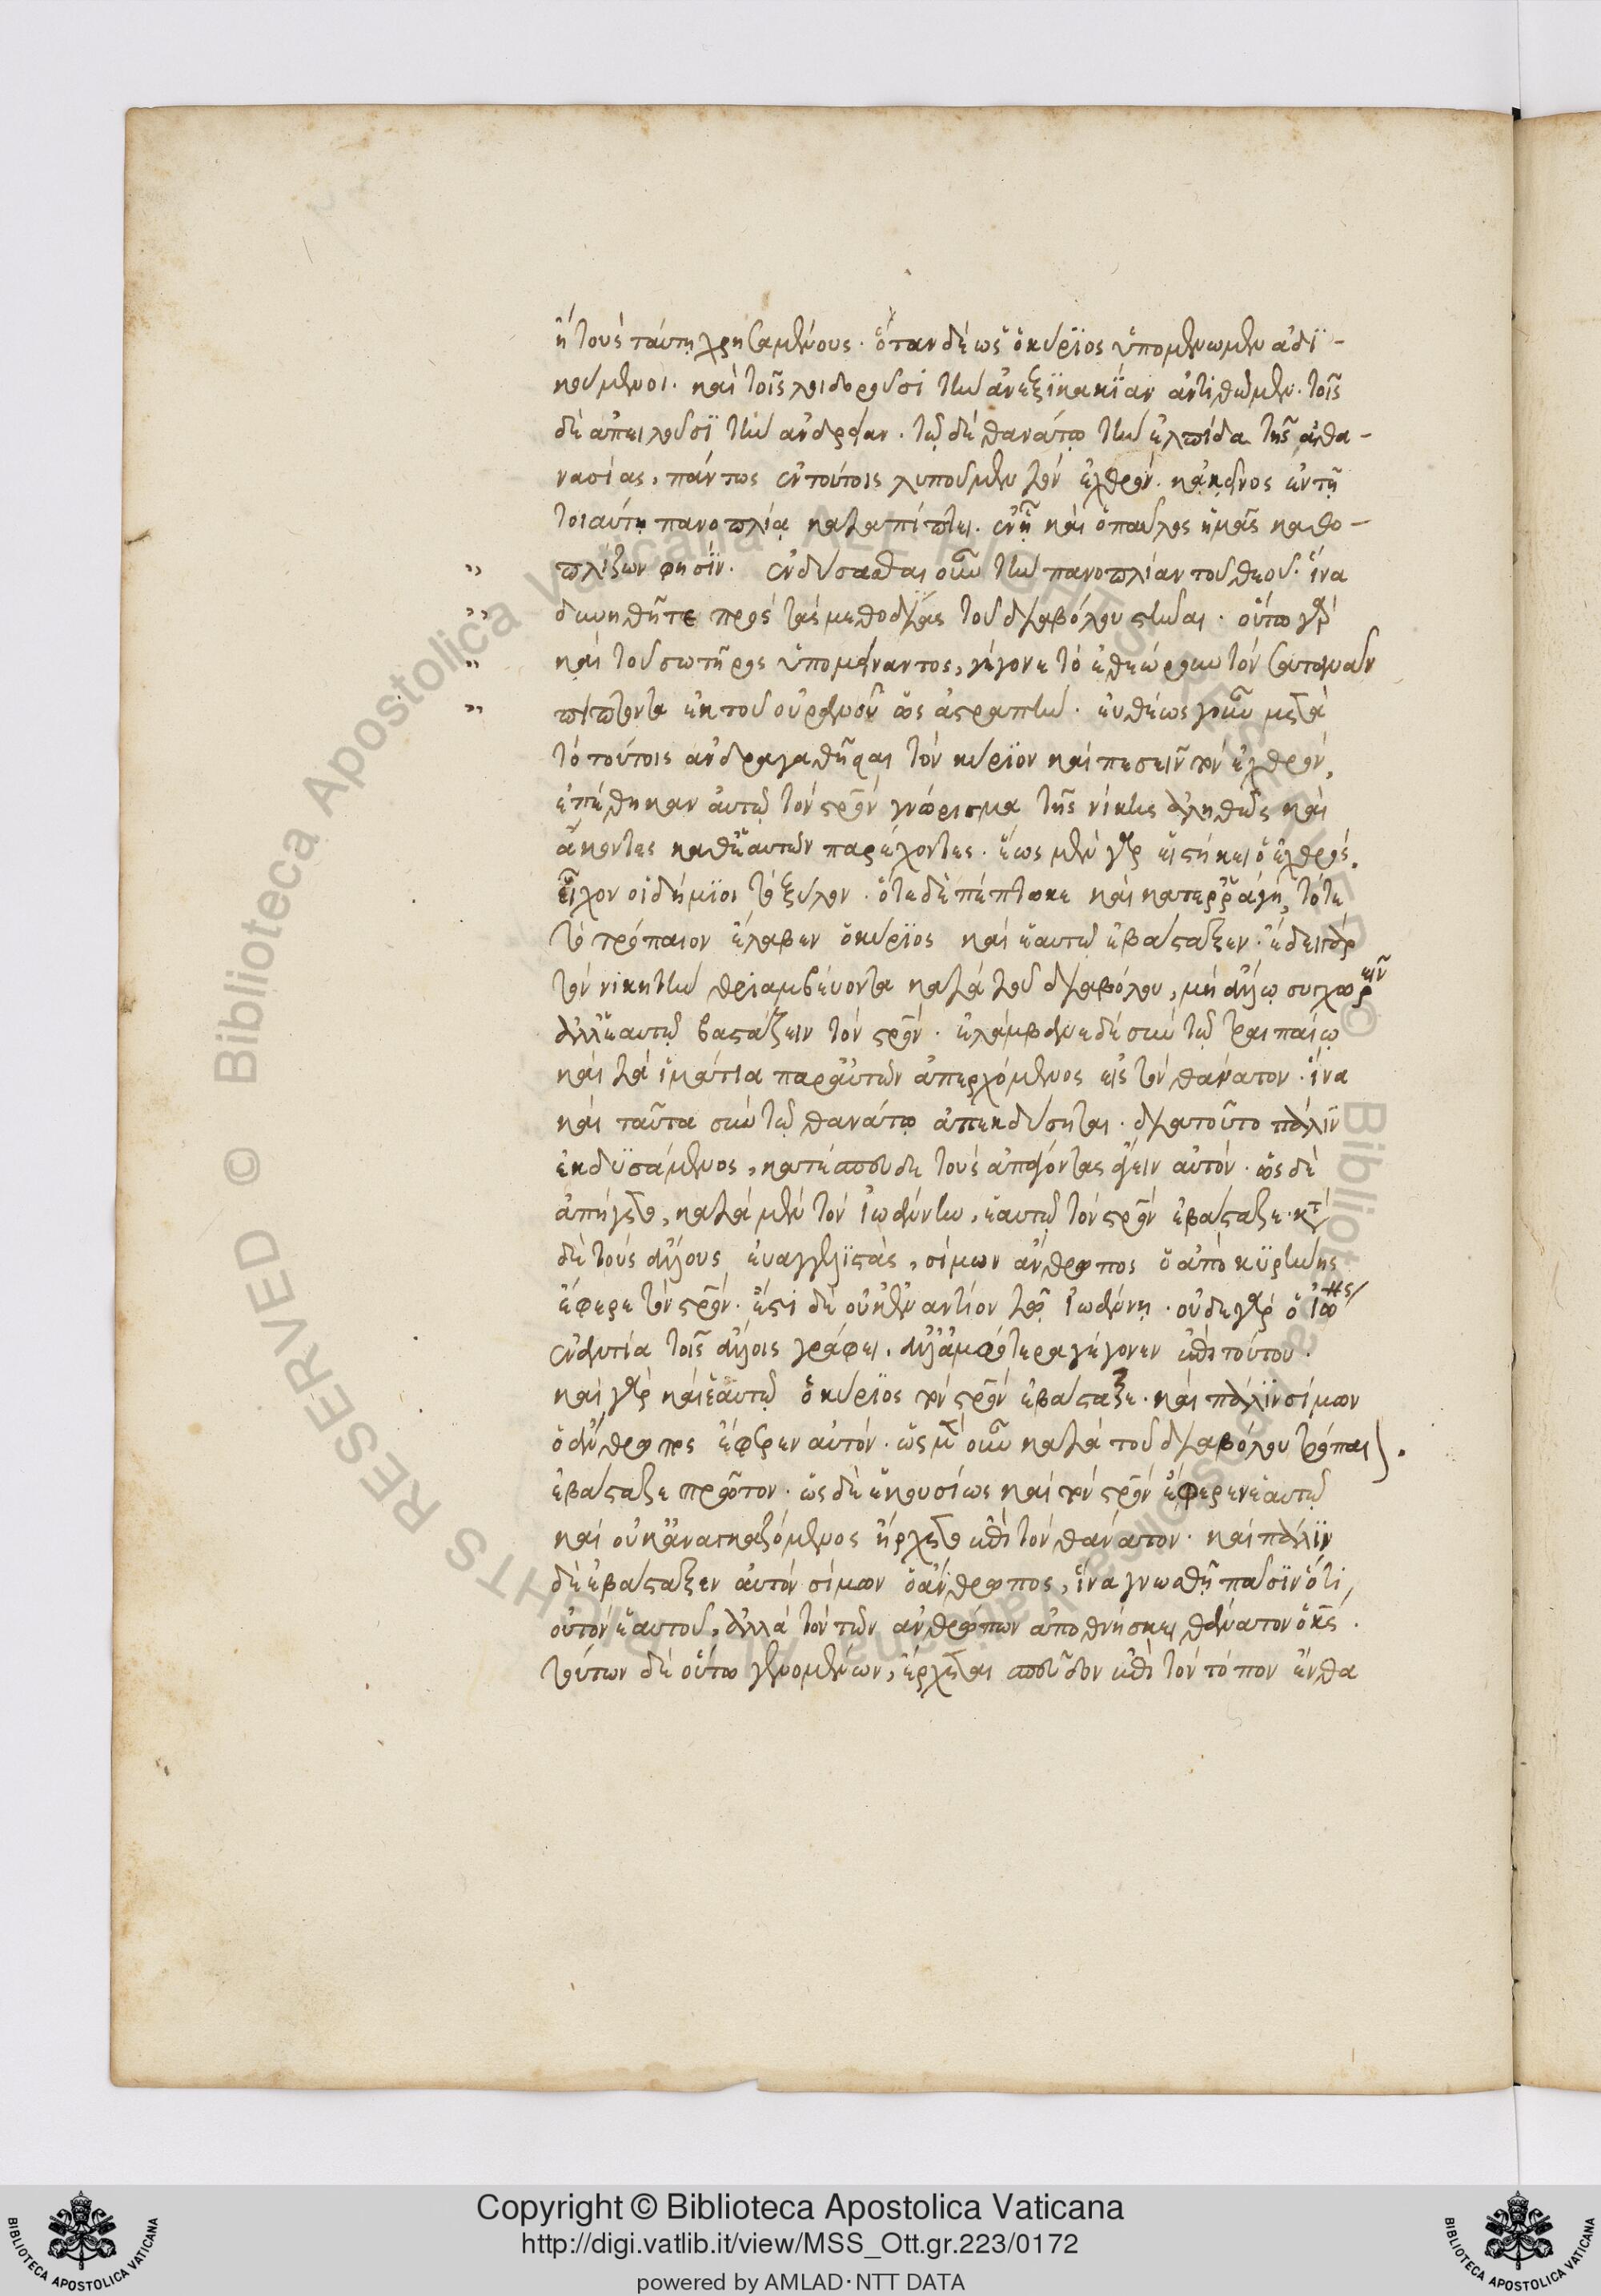 ἢ τοὺς ταύτῃ χρησαμένους. ὅταν δὲ ὡς ὁ κύριος ὑπομένωμεν ἀδι-
κούμενοι. καὶ τοῖς λοιδοροῦσι τὴν ἀνεξικακίαν ἀντιθῶμεν. τοῖς
δὲ ἀπειλοῦσι τὴν ἀνδρείαν. τῷ δὲ θανάτῳ τὴν ἐλπίδα τῆς ἀθα-
νασίας, πάντως ἐν τούτοις λυποῦμεν τὸν ἐχθρόν. κἀκεῖνος ἐν τῇ
τοιαύτῃ πανοπλίᾳ καταπίπτει. ἐν ᾗ καὶ ὁ παῦλος ἡμᾶς καθο-
" πλίζων φησίν. ἐνδύσασθαι οὖν τὴν πανοπλίαν τοῦ θεοῦ. ἵνα
" δυνηθῆτε πρὸς τὰς μεθοδείας τοῦ διαβόλου στῆναι. οὕτω γὰρ
" καὶ τοῦ σωτῆρος ὑπομείναντος, γέγονε τὸ ἐθεώρουν τὸν σατανᾶν
" πίπτοντα ἐκ τοῦ οὐρανοῦ ὡς ἀστραπήν. εὐθέως γοῦν μετὰ
τὸ τούτοις ἀνδραγαθῆσαι τὸν κύριον καὶ πεσεῖν τὸν ἐχθρόν,
ἐπέθηκαν αὐτῷ τὸν σρον γνώρισμα τῆς νίκης ἀληθῶς καὶ
ἄκοντες καθ' ἑαυτῶν παρέχοντες. ἕως μὲν γὰρ εἱστήκει ὁ ἐχθρός.
εἶχον οἱ δήμιοι τὸ ξύλον. ὅτε δὲ πέπτωκε καὶ κατερράγη, τότε
τὸ τρόπαιον ἔλαβεν ὁ κύριος καὶ ἑαυτῷ ἐβάσταξεν. ἔδει γὰρ
τὸν νικητὴν θριαμβεύοντα κατὰ τοῦ διαβόλου, μὴ ἄλλῳ συγχωρεῖν
ἀλλ' ἑαυτῷ βαστάζειν τὸν σρον. ἐλάμβανε δὲ σὺν τῷ τροπαίῳ
καὶ τὰ ἱμάτια παρ' αὐτῶν ἀπερχόμενος εἰς τὸν θάνατον. ἵνα
καὶ ταῦτα σὺν τῷ θανάτῳ ἀπεκδύσηται. διὰ τοῦτο πάλιν
ἐκδυσάμενος, κατέσπευδε τοὺς ἀπάγοντας ἄγειν αὐτόν. ὡς δὲ
ἀπήγετο, κατὰ μὲν τὸν ἰωάννην, ἑαυτῷ τὸν σρον ἐβάσταξε. κτ
δὲ τοὺς ἄλλους εὐαγγελιστὰς, σίμων ἄνθρωπος ὁ ἀπὸ κυρήνης
ἔφερε τὸν σρον. ἔστι δὲ οὐκ ἐναντίον τῷ ἰωάννῃ. οὐδὲ γὰρ ὁ ἰωης
ἐναντία τοῖς ἄλλοις γράφει, ἀλλ' ἀμφότερα γέγονεν ἐπὶ τούτου.
καὶ γὰρ καὶ ἑαυτῷ ὁ κύριος τὸν σρον ἐβάσταξε. καὶ πάλιν σίμων
ὁ ἄνθρωπος ἔφερεν αὐτόν. ὡς μὲν οὖν κατὰ τοῦ διαβόλου τρόπαι)
ἐβάσταξε πρῶτον. ὡς δὲ ἑκουσίως καὶ τὸν σρον ἔφερεν ἑαυτῷ
καὶ οὐκ ἀναγκαζόμενος ἤρχετο ἐπὶ τὸν θάνατον. καὶ πάλιν
δὲ ἐβάσταξεν αὐτὸν σίμων ὁ ἄνθρωπος, ἵνα γνωσθῇ πᾶσιν ὅτι,
οὐ τὸν ἑαυτοῦ, ἀλλὰ τὸν τῶν ἀνθρώπων ἀποθνήσκει θάνατον ὁ κς.
τούτων δὲ οὕτω γενομένων, ἔρχεται σπεῦδον ἐπὶ τὸν τόπον ἔνθα
Biblioteca Apostolica Vaticana ALL RIGHTS RESERVED ©
Copyright © Biblioteca Apostolica Vaticana
http://digi.vatlib.it/view/MSS_Ott.gr.223/0172
powered by AMLAD·NTT DATA
BIBLIOTECA APOSTOLICA VATICANA
BIBLIOTECA APOSTOLICA VATICANA